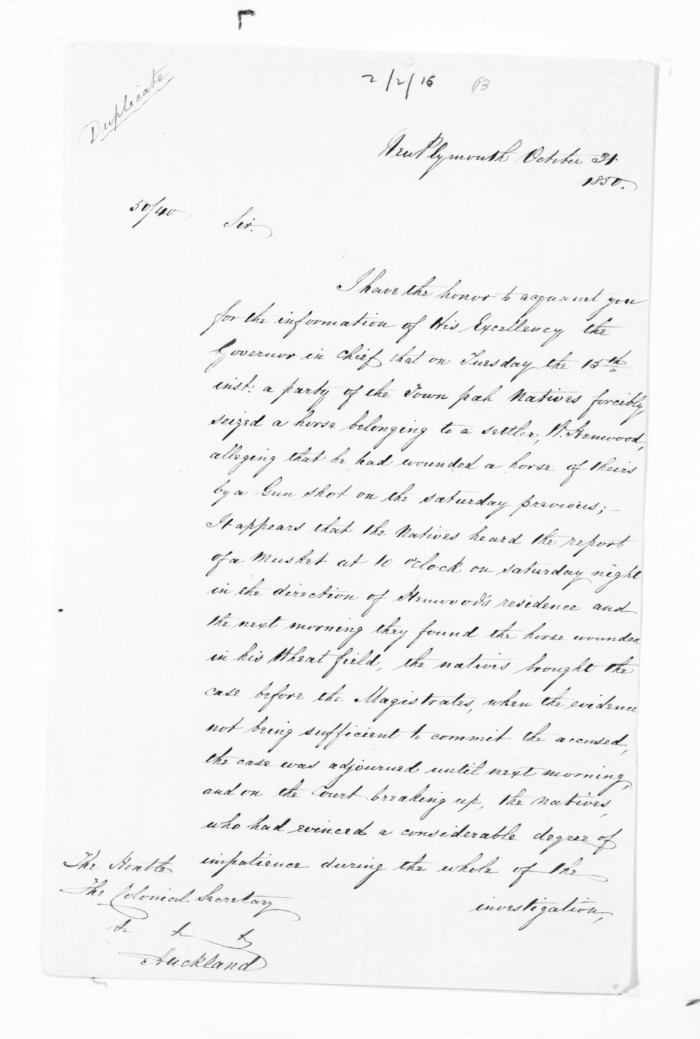 Duplicate
2/2/16 B
New Plymouth October 31.
1850.
50/40
Sir.
I have the honor to acquaint you
for the information of His Excellency the
Governor in Chief that on Tuesday the 15th
inst: a party of the Town pah Natives forcibly
seized a horse belonging to a settler, W. Henwood,
alleging that he had wounded a horse of theirs
by a Gun shot on the saturday previous; -
It appears that the Natives heard the report
of a Musket at 10 o'Clock on saturday night
in the direction of Henwood's residence and
the next morning they found the horse wounded
in his Wheat field, the natives brought the
case before the Magistrates, when the evidence
not being sufficient to commit the accused,
the case was adjourned until next morning,
and on the Court breaking up, the natives,
who had evinced a considerable degree of
impatience during the whole of the
investigation,
The Honble
The Colonial Secretary
& & &
Auckland